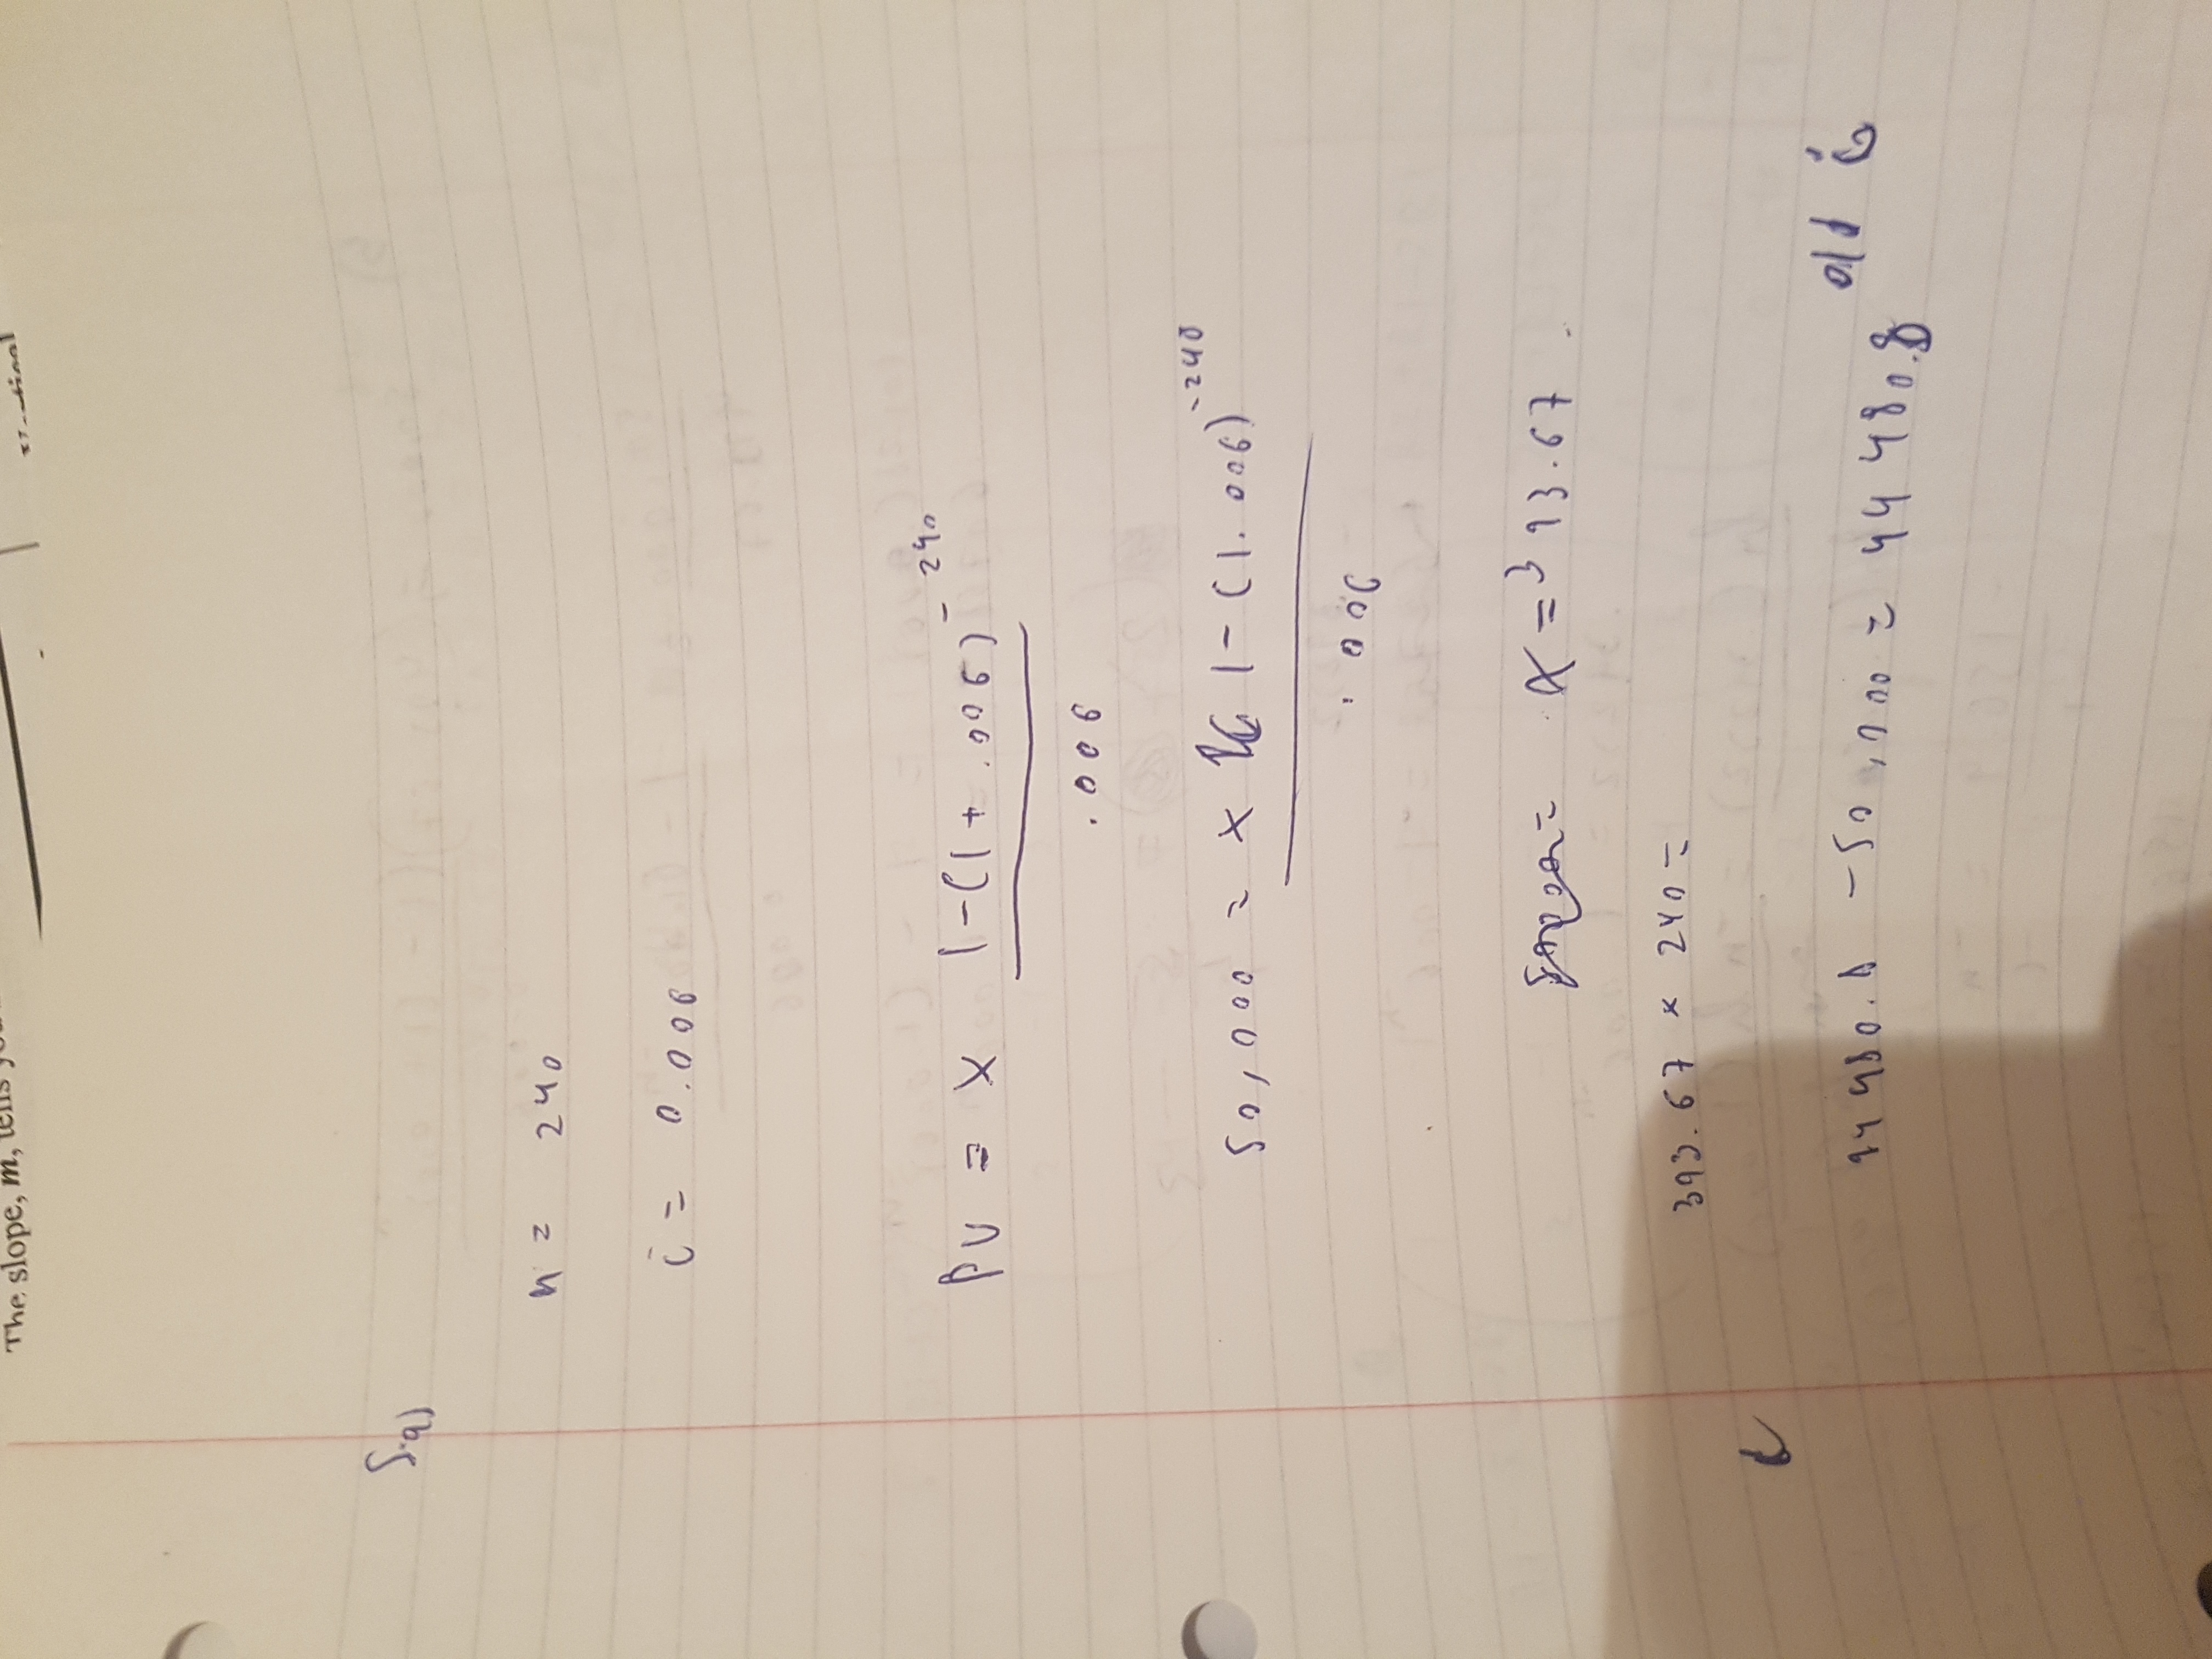 The slope, m, tells
5.a)
n = 240
i = 0.006
PV = x 1-(1+.006)^-240
.006
50,000 = x 1-(1.006)^-240
.006
x = 393.67
393.67 x 240 =
94480.8 - 50,000 = 44480.8
old i